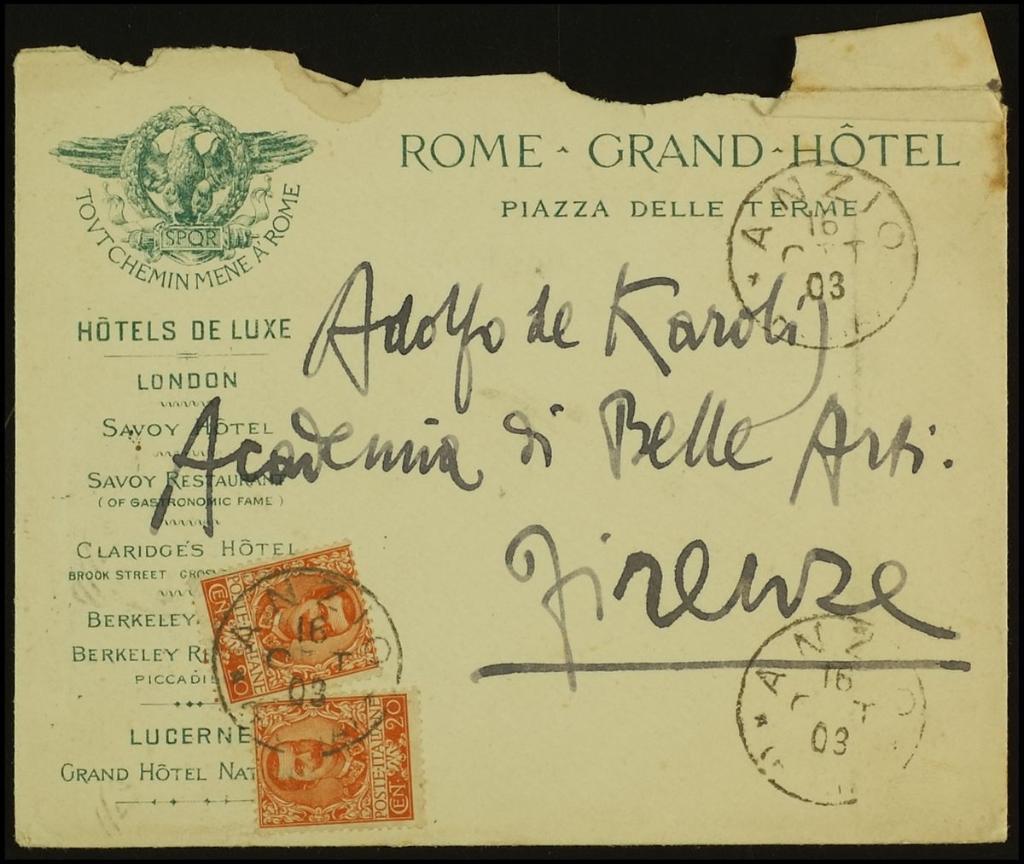 ROME - GRAND - HÔTEL
PIAZZA DELLE TERME
SPQR
TOVT CHEMIN MENE A ROME
HÔTELS DE LUXE
LONDON
SAVOY HÔTEL
SAVOY RESTAURANT
(OF GASTRONOMIC FAME)
CLARIDGE'S HÔTEL
BROOK STREET
BERKELEY
BERKELEY
LUCERNE
GRAND HÔTEL
Adolfo de Karolis
Academia di Belle Arti.
Firenze
ANZIO
16
OTT
03
POSTE ITALIANE
CEN 20
ANZIO
16
OTT
03
POSTE ITALIANE
CEN 20
ANZIO
16
OTT
03